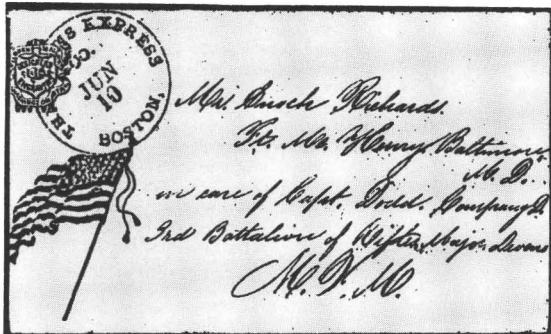 EXPRESS
CO.
JUN
10
BOSTON,
Mr. Enoch Richards.
Ft. Mc. Henry Baltimore
M. D.
in care of Capt. Dodd. Company
3rd Battalion of Rifles, Major Devens
M. V. M.